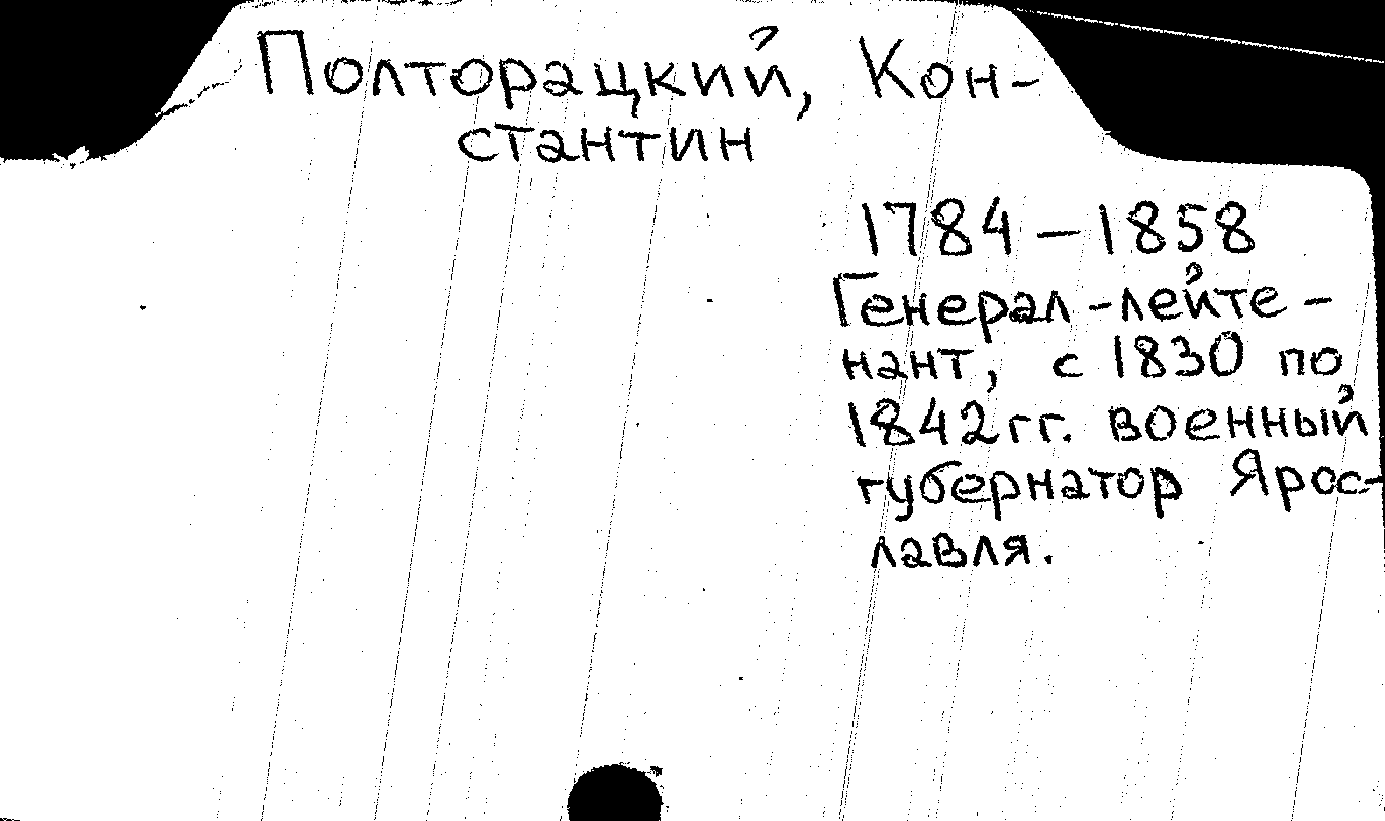 Полторацкий, Кон-
стантин
1784 – 1858
Генерал-лейте-
нант, с 1830 по
1842 гг. военный
губернатор Ярос-
лавля.